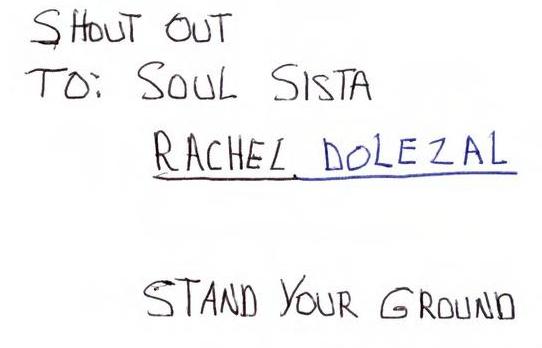 SHOUT OUT
TO: SOUL SISTA
RACHEL DOLEZAL
STAND YOUR GROUND